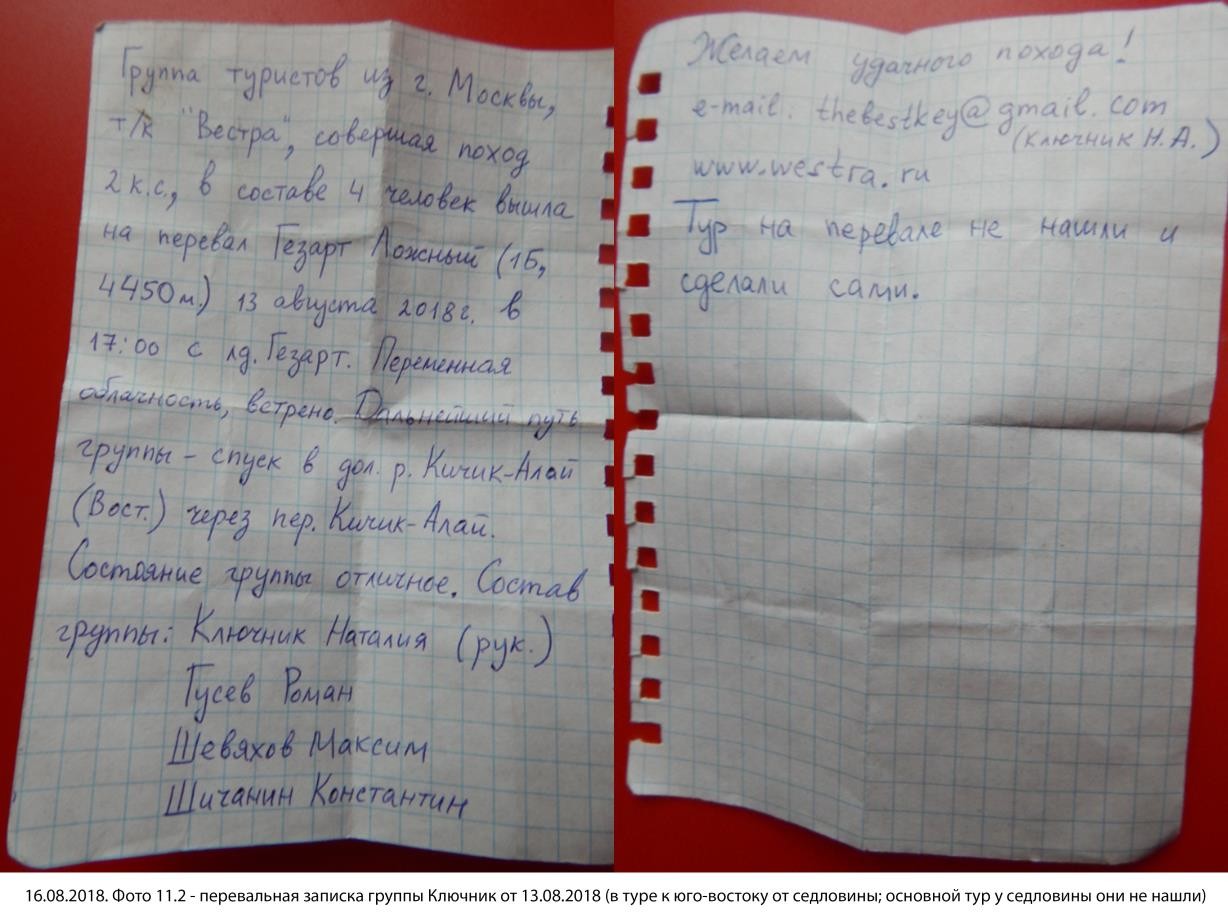 Группа туристов из г. Москвы,
т/к "Вестра", совершая поход
2 к.с., в составе 4 человек вышла
на перевал Гезарт Ложный (1Б,
4450м.) 13 августа 2018г. в
17:00 с лд. Гезарт. Переменная
облачность, встрено. Дальнейший путь
группы – спуск в дол. р. Кичик-Алай
(Вост.) через пер. Кичик-Алай.
Состояние группы отличное. Состав
группы: Ключник Наталия (рук.)
Гусев Роман
Шевяхов Максим
Шичанин Константин
Желаем удачного похода!
e-mail: thebestkey@gmail.com
(Ключник Н.А.)
www.westra.ru
Тур на перевале не нашли и
сделали сами.
16.08.2018. Фото 11.2 - перевальная записка группы Ключник от 13.08.2018 (в туре к юго-востоку от седловины; основной тур у седловины они не нашли)